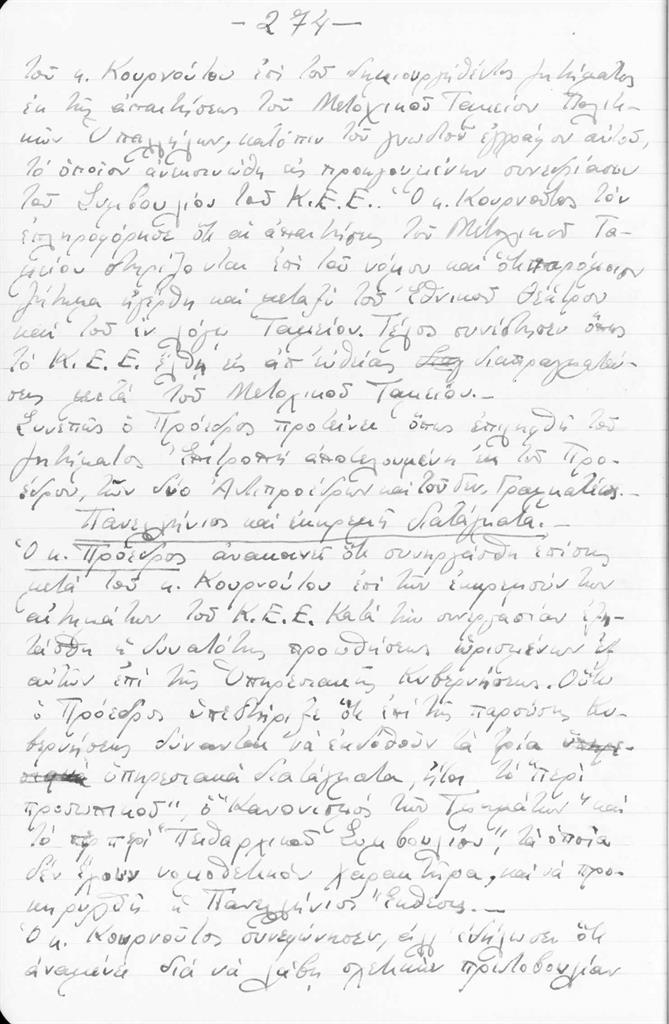 -274-
τοῦ κ. Κουρνούτου ἐπὶ τοῦ δημιουργηθέντος ζητήματος
ἐκ τῆς ἀπαιτήσεως τοῦ Μετοχικοῦ Ταμείου Πολιτι-
κῶν Ὑπαλλήλων, κατόπιν τοῦ γνωστοῦ ἐγγράφου αὐτοῦ,
τὸ ὁποῖον ἀνεκοινώθη εἰς προηγουμένην συνεδρίασιν
τοῦ Συμβουλίου τοῦ Κ.Ε.Ε.. Ὁ κ. Κουρνοῦτος τὸν
ἐπληροφόρησε ὅτι αἱ ἀπαιτήσεις τοῦ Μετοχικοῦ Τα-
μείου στηρίζονται ἐπὶ τοῦ νόμου καὶ ὅτι παρόμοιον
ζήτημα ἠγέρθη καὶ μεταξὺ τοῦ Ἐθνικοῦ Θεάτρου
καὶ τοῦ ἐν λόγῳ Ταμείου. Τέλος συνέστησεν ὅπως
τὸ Κ.Ε.Ε. ἔλθῃ εἰς ἀπ' εὐθείας διαπραγματεύ-
σεις μετὰ τοῦ Μετοχικοῦ Ταμείου.-
Συνεπῶς ὁ Πρόεδρος προτείνει ὅπως ἐπιληφθῇ τοῦ
ζητήματος Ἐπιτροπὴ ἀποτελουμένη ἐκ τοῦ Προ-
έδρου, τῶν δύο Ἀντιπροέδρων καὶ τοῦ Γεν. Γραμματέως.-
Πανελλήνιος καὶ ἐκκρεμῆ διατάγματα.-
Ὁ κ. Πρόεδρος ἀνακοινεῖ ὅτι συνηργάσθη ἐπίσης
μετὰ τοῦ κ. Κουρνούτου ἐπὶ τῶν ἐκκρεμούντων
αἰτημάτων τοῦ Κ.Ε.Ε. Κατὰ τὴν συνεργασίαν ἐξη-
τάσθη ἡ δυνατότης προωθήσεως ὡρισμένων ἐξ
αὐτῶν ἐπὶ τῆς Ὑπηρεσιακῆς Κυβερνήσεως. Οὕτω
ὁ Πρόεδρος ὑπεστήριξε ὅτι ἐπὶ τῆς παρούσης Κυ-
βερνήσεως δύνανται νὰ ἐκδοθοῦν τὰ τρία
ὑπηρεσιακὰ διατάγματα, ἤτοι τὸ "περὶ
προσωπικοῦ", ὁ "Κανονισμὸς τῶν Τμημάτων" καὶ
τὸ περὶ "Πειθαρχικοῦ Συμβουλίου", τὰ ὁποῖα
δὲν ἔχουν νομοθετικὸν χαρακτῆρα, καὶ νὰ προ-
κηρυχθῇ ἡ Πανελλήνιος Ἔκθεσις.-
Ὁ κ. Κουρνοῦτος συνεφώνησεν, ἀλλ' ἐδήλωσε ὅτι
ἀναμένει διὰ νὰ λάβῃ σχετικὴν πρωτοβουλίαν